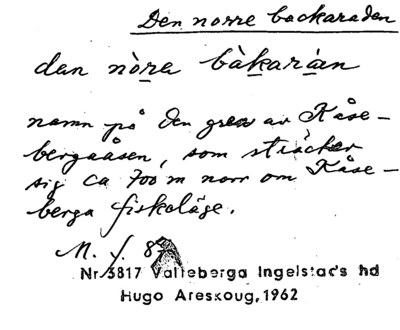 Den norre backaraden
dan nòra bàkaràn
namn på den gren av Kåse-
bergaåsen, som sträcker
sig ca 700 m norr om Kåse-
berga fiskeläge.
M. f. 87
Nr 3817 Valleberga Ingelstad's hd
Hugo Areskoug, 1962